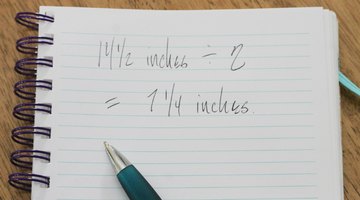 14 1/2 inches ÷ 2
= 7 1/4 inches.